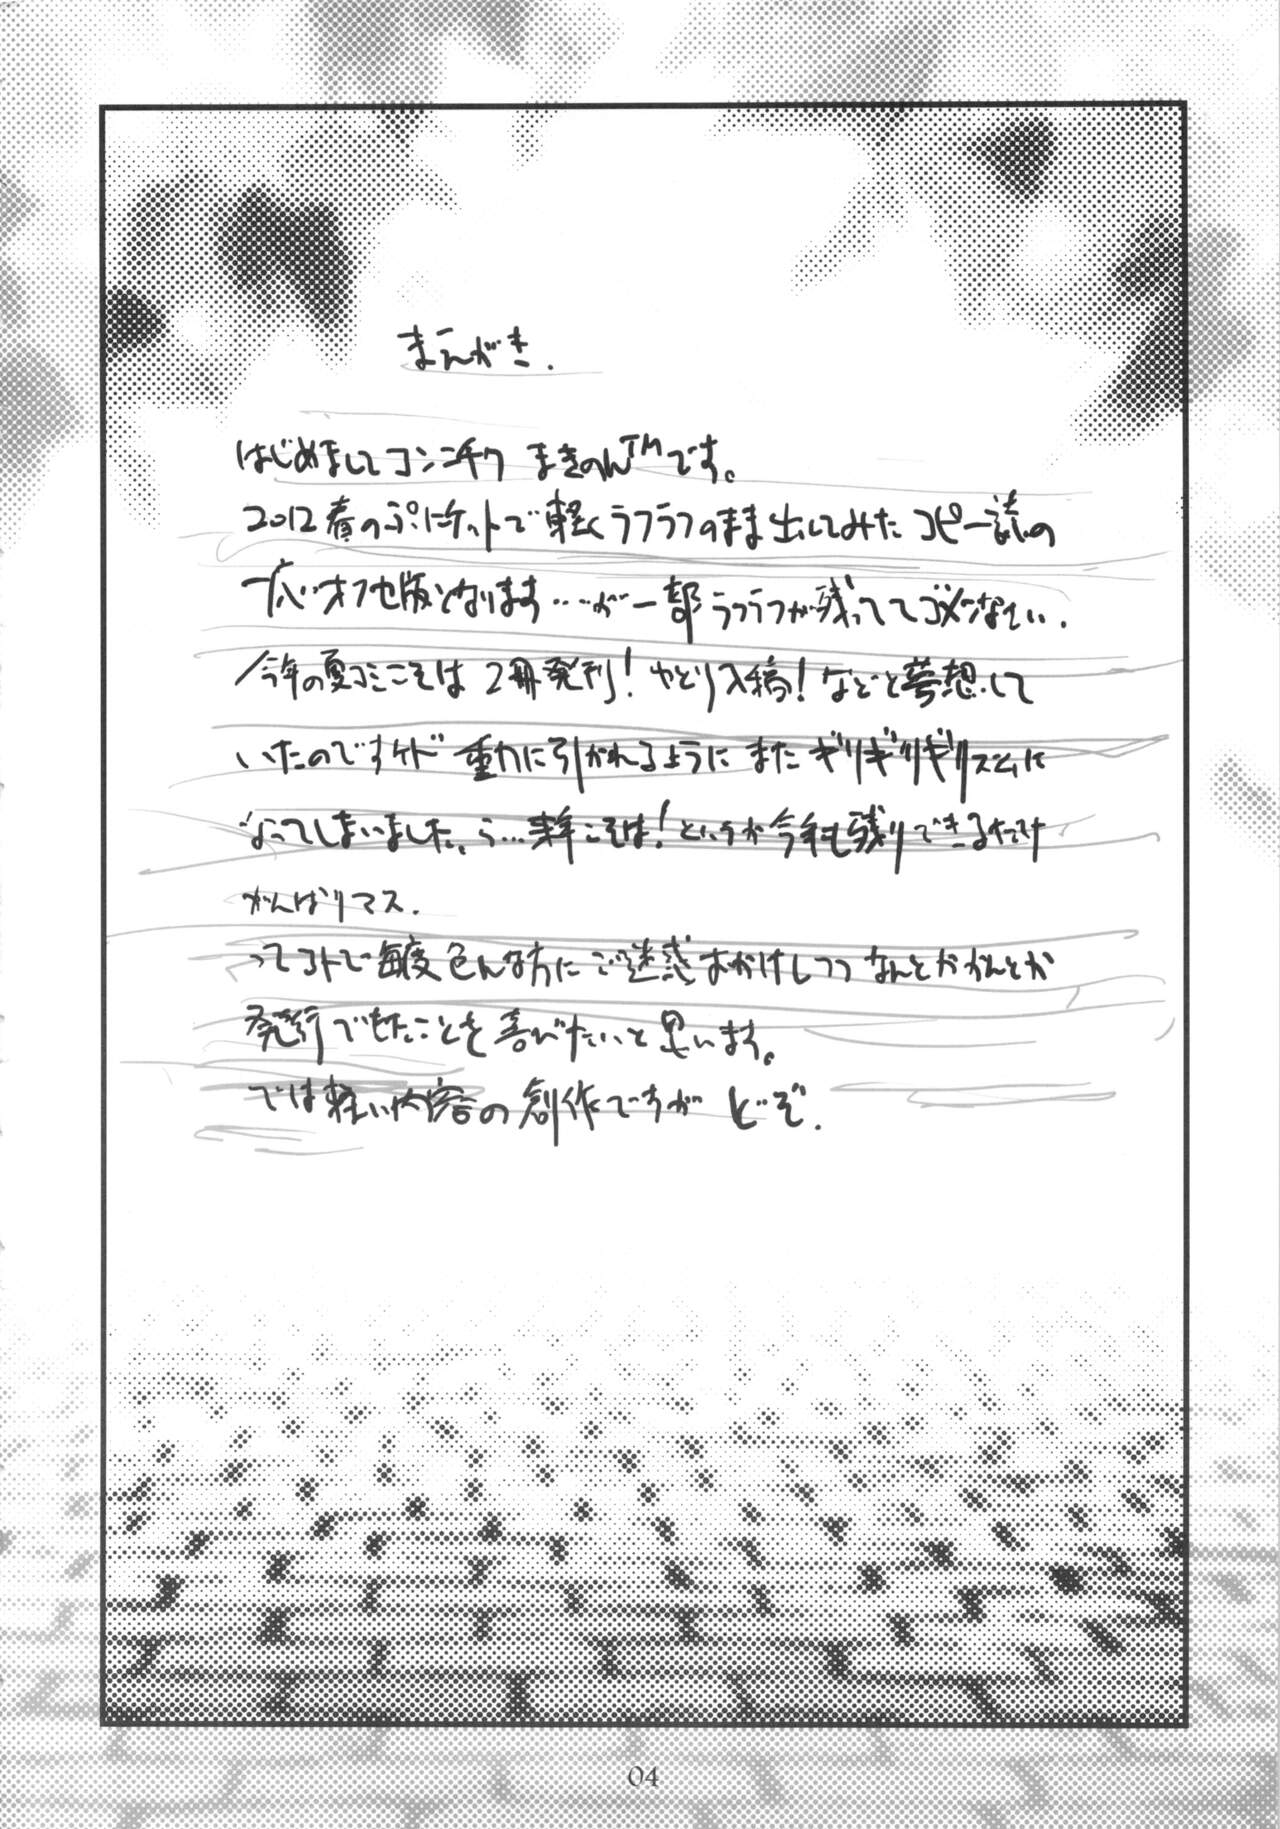 まえがき.
はじめましてコンニチワ まきのん™です。
2012春のぷにケットで軽くラフラフのまま出してみたコピー誌の
オフセ版となります…が一部ラフラフが残っててゴメンなさい.
今年の夏コミこそは2冊発刊!ゆとり入稿!などと夢想して
いたのですケド 重力に引かれるように またギリギリギリズムに
なってしまいました。ら…来年こそは!というか今年も残りできるだけ
がんばりマス.
ってコトで毎度色んな方にご迷惑おかけしつつ なんとかかんとか
発行できたことを喜びたいと思います。
では軽い内容の創作ですが どぞ.
04